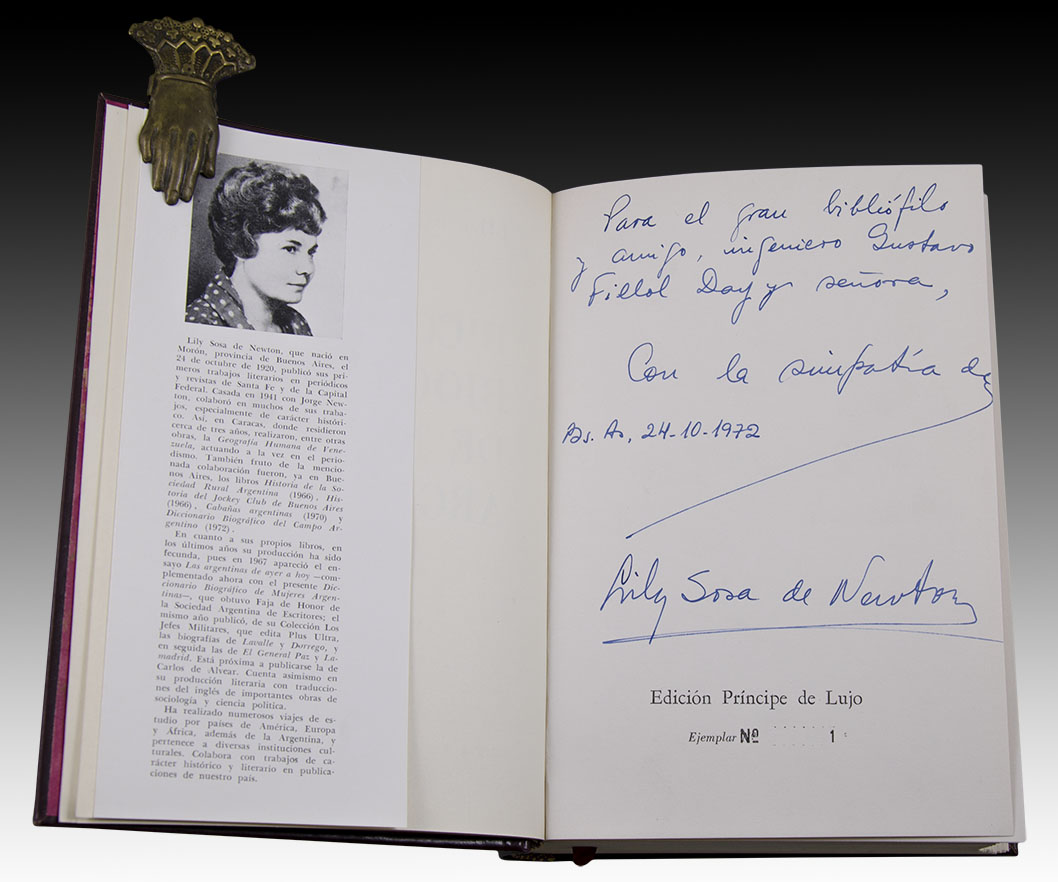 Lily Sosa de Newton, que nació en
Morón, provincia de Buenos Aires, el
24 de octubre de 1920, publicó sus pri-
meros trabajos literarios en periódicos
y revistas de Santa Fe y de la Capital
Federal. Casada en 1941 con Jorge New-
ton, colaboró en muchos de sus traba-
jos, especialmente de carácter históri-
co. Así, en Caracas, donde residieron
cerca de tres años, realizaron, entre otras
obras, la Geografía Humana de Vene-
zuela, actuando a la vez en el perio-
dismo. También fruto de la mencio-
nada colaboración fueron, ya en Bue-
nos Aires, los libros Historia de la So-
ciedad Rural Argentina (1966), His-
toria del Jockey Club de Buenos Aires
(1966), Cabañas argentinas (1970) y
Diccionario Biográfico del Campo Ar-
gentino (1972).
En cuanto a sus propios libros, en
los últimos años su producción ha sido
fecunda, pues en 1967 apareció el en-
sayo Las argentinas de ayer a hoy —com-
plementado ahora con el presente Dic-
cionario Biográfico de Mujeres Argen-
tinas—, que obtuvo Faja de Honor de
la Sociedad Argentina de Escritores; el
mismo año publicó, de su Colección Los
Jefes Militares, que edita Plus Ultra,
las biografías de Lavalle y Dorrego, y
en seguida las de El General Paz y La-
madrid. Está próxima a publicarse la de
Carlos de Alvear. Cuenta asimismo en
su producción literaria con traduccio-
nes del inglés de importantes obras de
sociología y ciencia política.
Ha realizado numerosos viajes de es-
tudio por países de América, Europa
y África, además de la Argentina, y
pertenece a diversas instituciones cul-
turales. Colabora con trabajos de ca-
rácter histórico y literario en publica-
ciones de nuestro país.
Para el gran bibliófilo
y amigo, ingeniero Gustavo
Fillol Day y señora,
Con la simpatía de
Bs. As, 24-10-1972
Lily Sosa de Newton
Edición Príncipe de Lujo
Ejemplar Nº 1